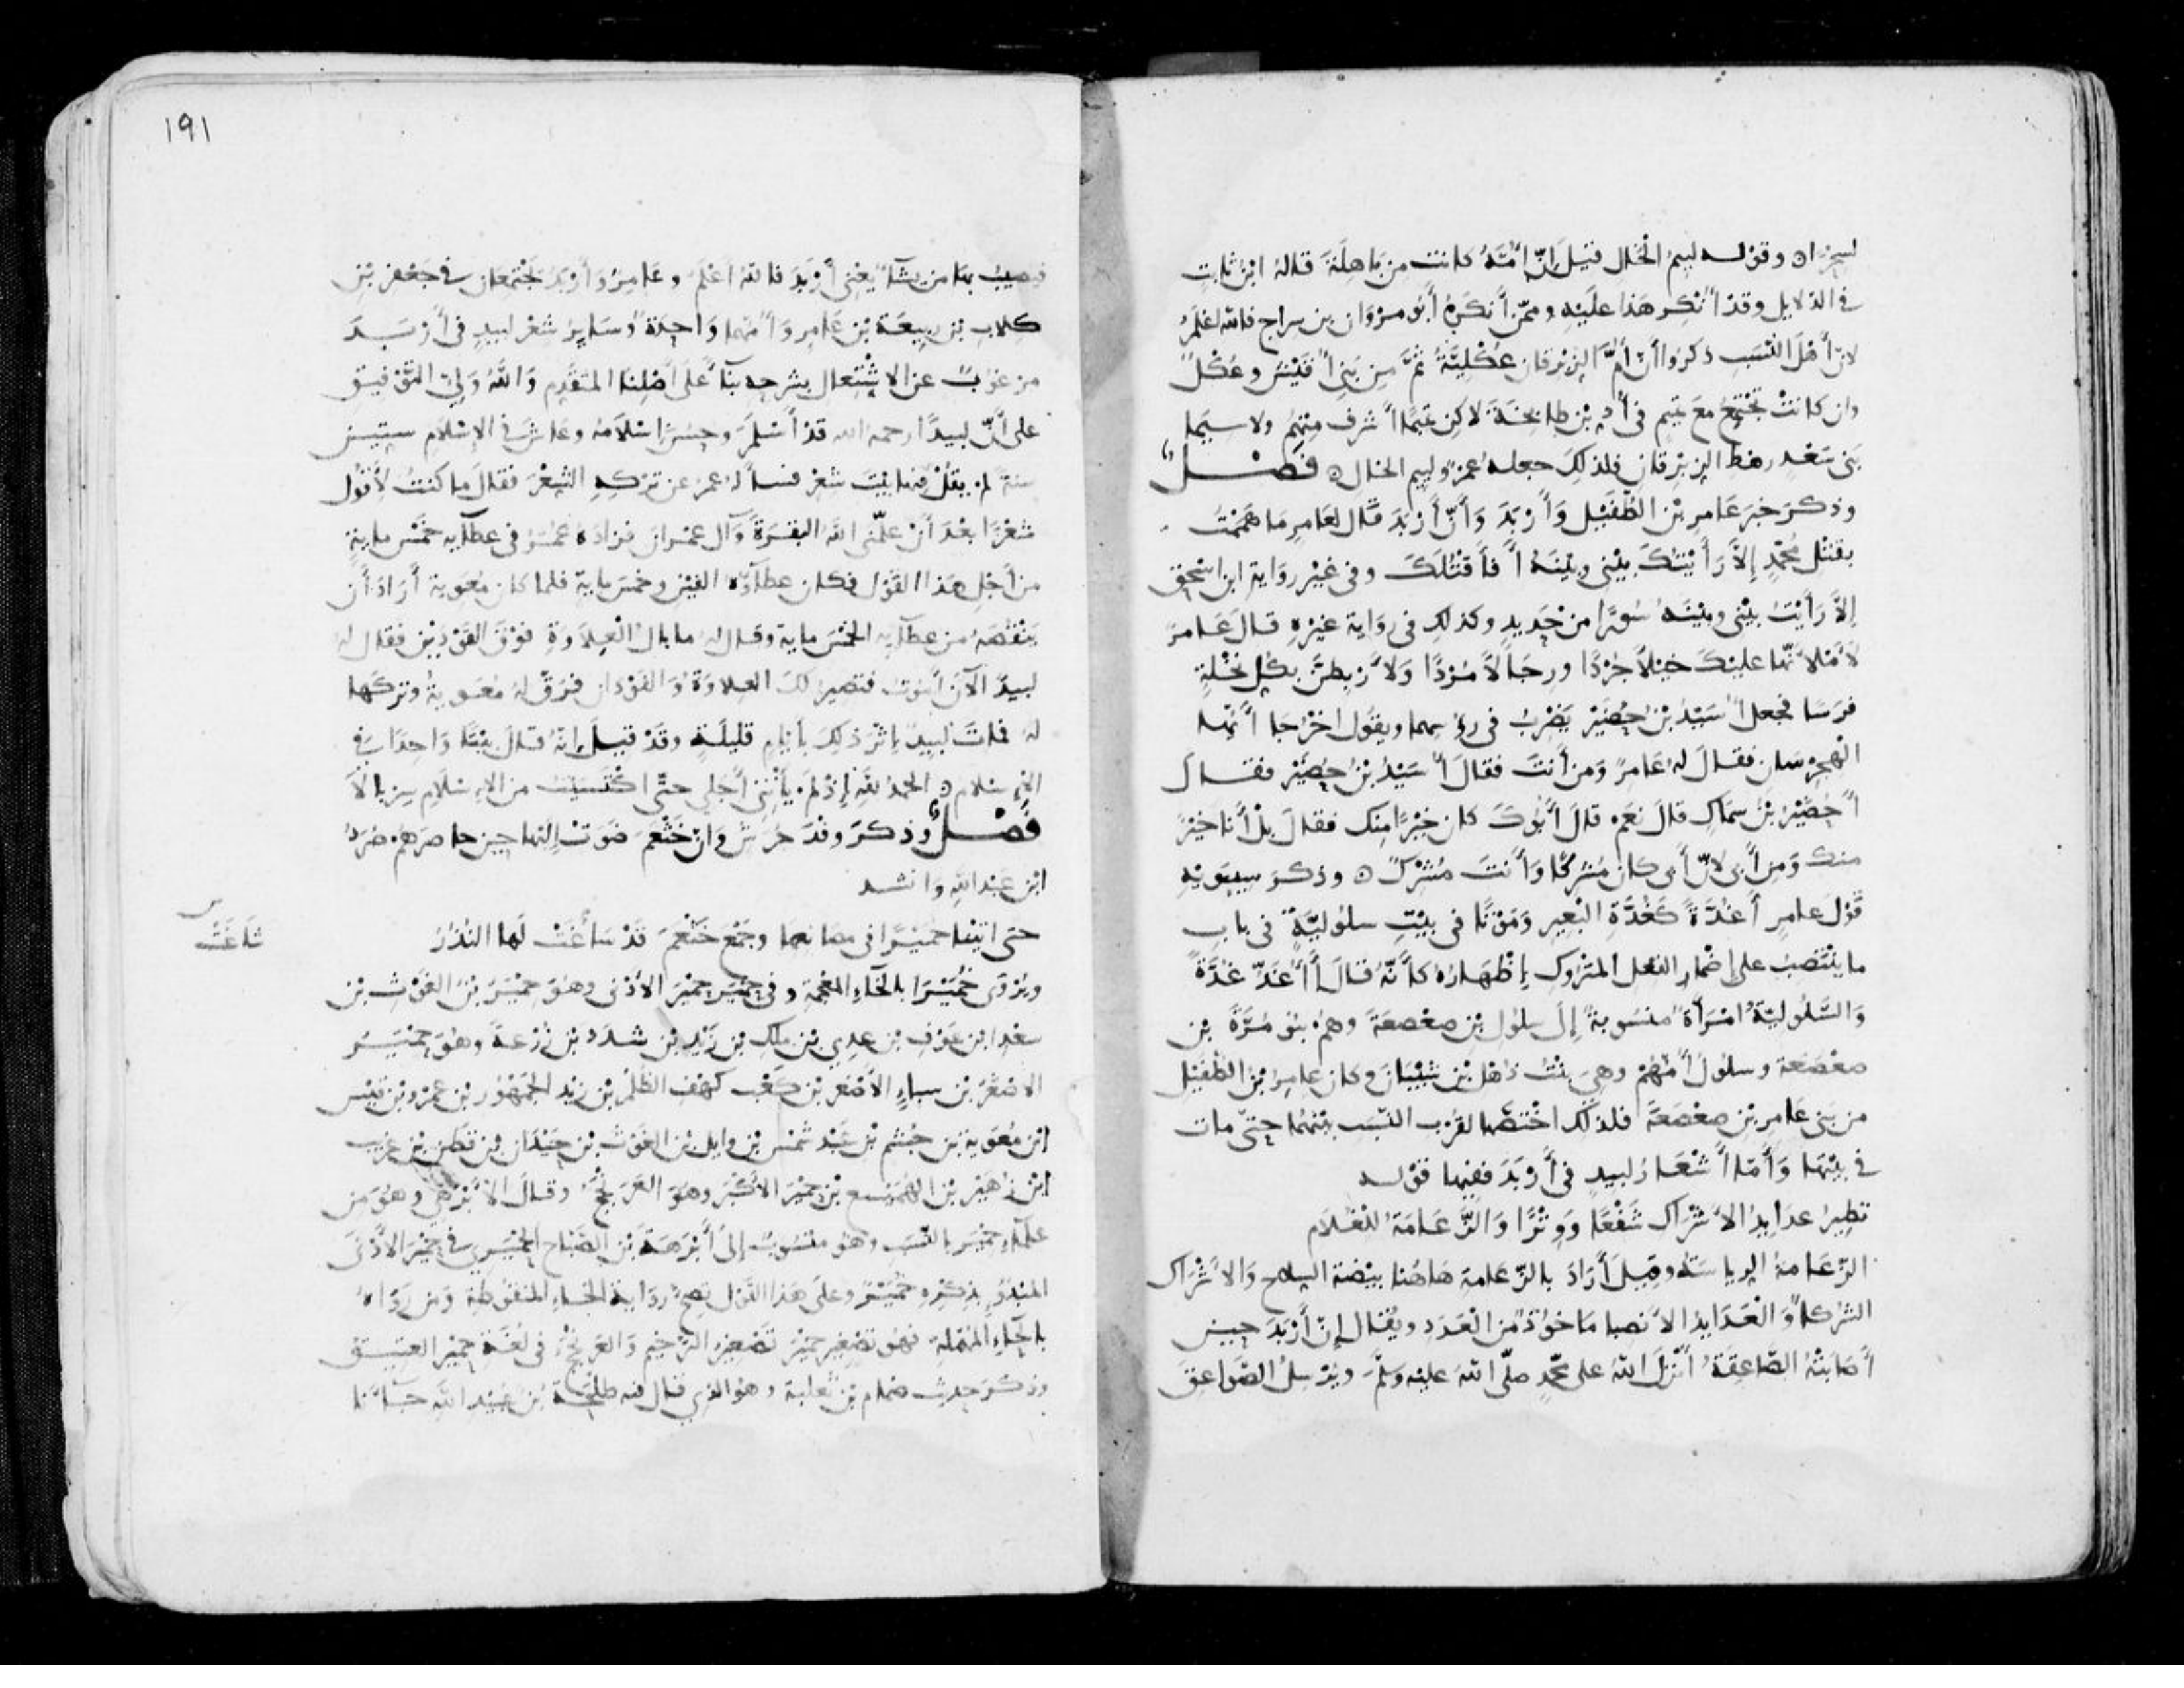 لسحرا ه وقوله ليم الخال قيل إنّ أمّه كانت من باهلة قاله ابن ثابت
في الدلايل وقد أنكر هذا عليه وممّن أنكره أبو مروان بن سراج فالله أعلم
لانّ أهل النسب ذكروا أن أمّ الزبرقان عكليّة ثمّ من بني أقيش وعكل
وان كانت تجتمع مع تميم في أدّ بن طابخة لاكن تميما أشرف منهم ولا سيما
بني سعد رهط الزبرقان فلذلك جعله عمرو ليم الخال ه فصل
وذكر خبر عامر بن الطفيل وأربد وأنّ أربد قال لعامر ما هممت
بقتل محمد إلا رأيتك بيني وبينه أفأقتلك وفي غير رواية ابن اسحق
إلا رأيت بيني وبينه سورا من حديد وكذلك في رواية غيره قال عامر
لأملأنّها عليك خيلا جردا ورجالا مردا ولأربطنّ بكل نخلة
فرسا فجعل أسيد بن حضير يضرب في رءوسهما ويقول اخرجا أيّها
الهجرسان فقال له عامر ومن أنت فقال أسيد بن حضير فقال
أحضير بن سماك قال نعم قال أبوك كان خيرا منك فقال بل أنا خير
منك ومن أبي لانّ أبي كان مشركا وأنت مشرك ه وذكر سيبويه
قول عامر أغدّة كغدّة البعير وموتا في بيت سلوليّة في باب
ما ينتصب على إضمار الفعل المتروك إظهاره كأنّه قال أأغدّ غدّة
والسّلوليّة امرأة منسوبة إلى سلول بن صعصعة وهم بنو مرّة بن
صعصعة وسلول أمّهم وهي بنت ذهل بن شيبان وكان عامر بن الطفيل
من بني عامر بن صعصعة فلذلك اختصّها لقرب النسب بينهما حتّى مات
في بيتها وأمّا أشعار لبيد في أربد ففيها قوله
تطير عدايد الأشراك شفعا ووترا والزّعامة للغلام
الزّعامة الرياسة وقيل أراد بالزّعامة هاهنا بيضة السلاح والأشراك
الشركاء والعدايد الأنصباء مأخوذ من العدد ويقال إنّ أربد حين
أصابته الصّاعقة أنزل الله على محمّد صلّى الله عليه وسلّم ويرسل الصّواعق
١٩١
فيصيب بها من يشآء يعني أربد فالله أعلم وعامر وأربد يجتمعان في جعفر بن
كلاب بن ربيعة بن عامر وأمّهما واحدة وساير شعر لبيد في أربد
من عن الاشتغال بشرحه بنآء على أصلنا المتقدّم والله وليّ التوفيق
على أنّ لبيدا رحمه الله قد أسلم وحسن إسلامه وعاش في الإسلام ستين
سنة لم يقل فيها بيت شعر فسأله عمر عن تركه الشعر فقال ما كنت لأقول
شعرا بعد أن علّمني الله البقرة وآل عمران فزاده عمر في عطآيه خمس ماية
من أجل هذا القول فكان عطآؤه الفين وخمس ماية فلما كان معوية أراد أن
ينقصه من عطآيه الخمس ماية وقال له ما بال العلاوة فوق الفودين فقال له
لبيد الآن أموت فتصير لك العلاوة والفودان فرقّ له معوية وتركها
له فمات لبيد بإثر ذلك بأيام قليلة وقد قيل إنّه قال بيتا واحدا في
الإسلام ه الحمد لله إذ لم يأتني أجلي حتّى اكتسيت من الإسلام سربالا
فصل وذكر وفد جرش وأن خثعم ضوت إليها حين حاصرهم صرد
ابن عبد الله وانشد
حتى اتينا حميرا في مصانعها وجمع خثعم قد سأغت لها النذر
شاعت
ويروى خميرا بالخآء المعجمة وفي حمير حمير الأدنى وهو حمير بن الغوث بن
سعد ابن عوف بن عدي بن ملك بن زيد بن شدد بن زرعة وهو حمير
الاصغر بن سباء الأصغر بن كعب كهف الظلم بن زيد الجمهور بن عمرو بن قيس
ابن معوية بن جشم بن عبد شمس بن وايل بن الغوث بن حيدان بن قطن بن عريب
ابن زهير بن الهميسع بن حمير الأكبر وهو العرنجج وقال الأبرهي وهو من
علمآء حمير بالنسب وهو منسوب إلى أبرهة بن الصّبّاح الحميري في حمير الأدنى
المبدوء بذكره خمير وعلى هذا القول تصحّ رواية الخآء المنقوطة ومن رواه
بالحآء المهملة فهو تصغير حمير تصغير الترخيم والعرنجج في لغة حمير العتيق
وذكر حديث ضمام بن ثعلبة وهو الذي قال فيه طلحة بن عبيد الله جآءنا